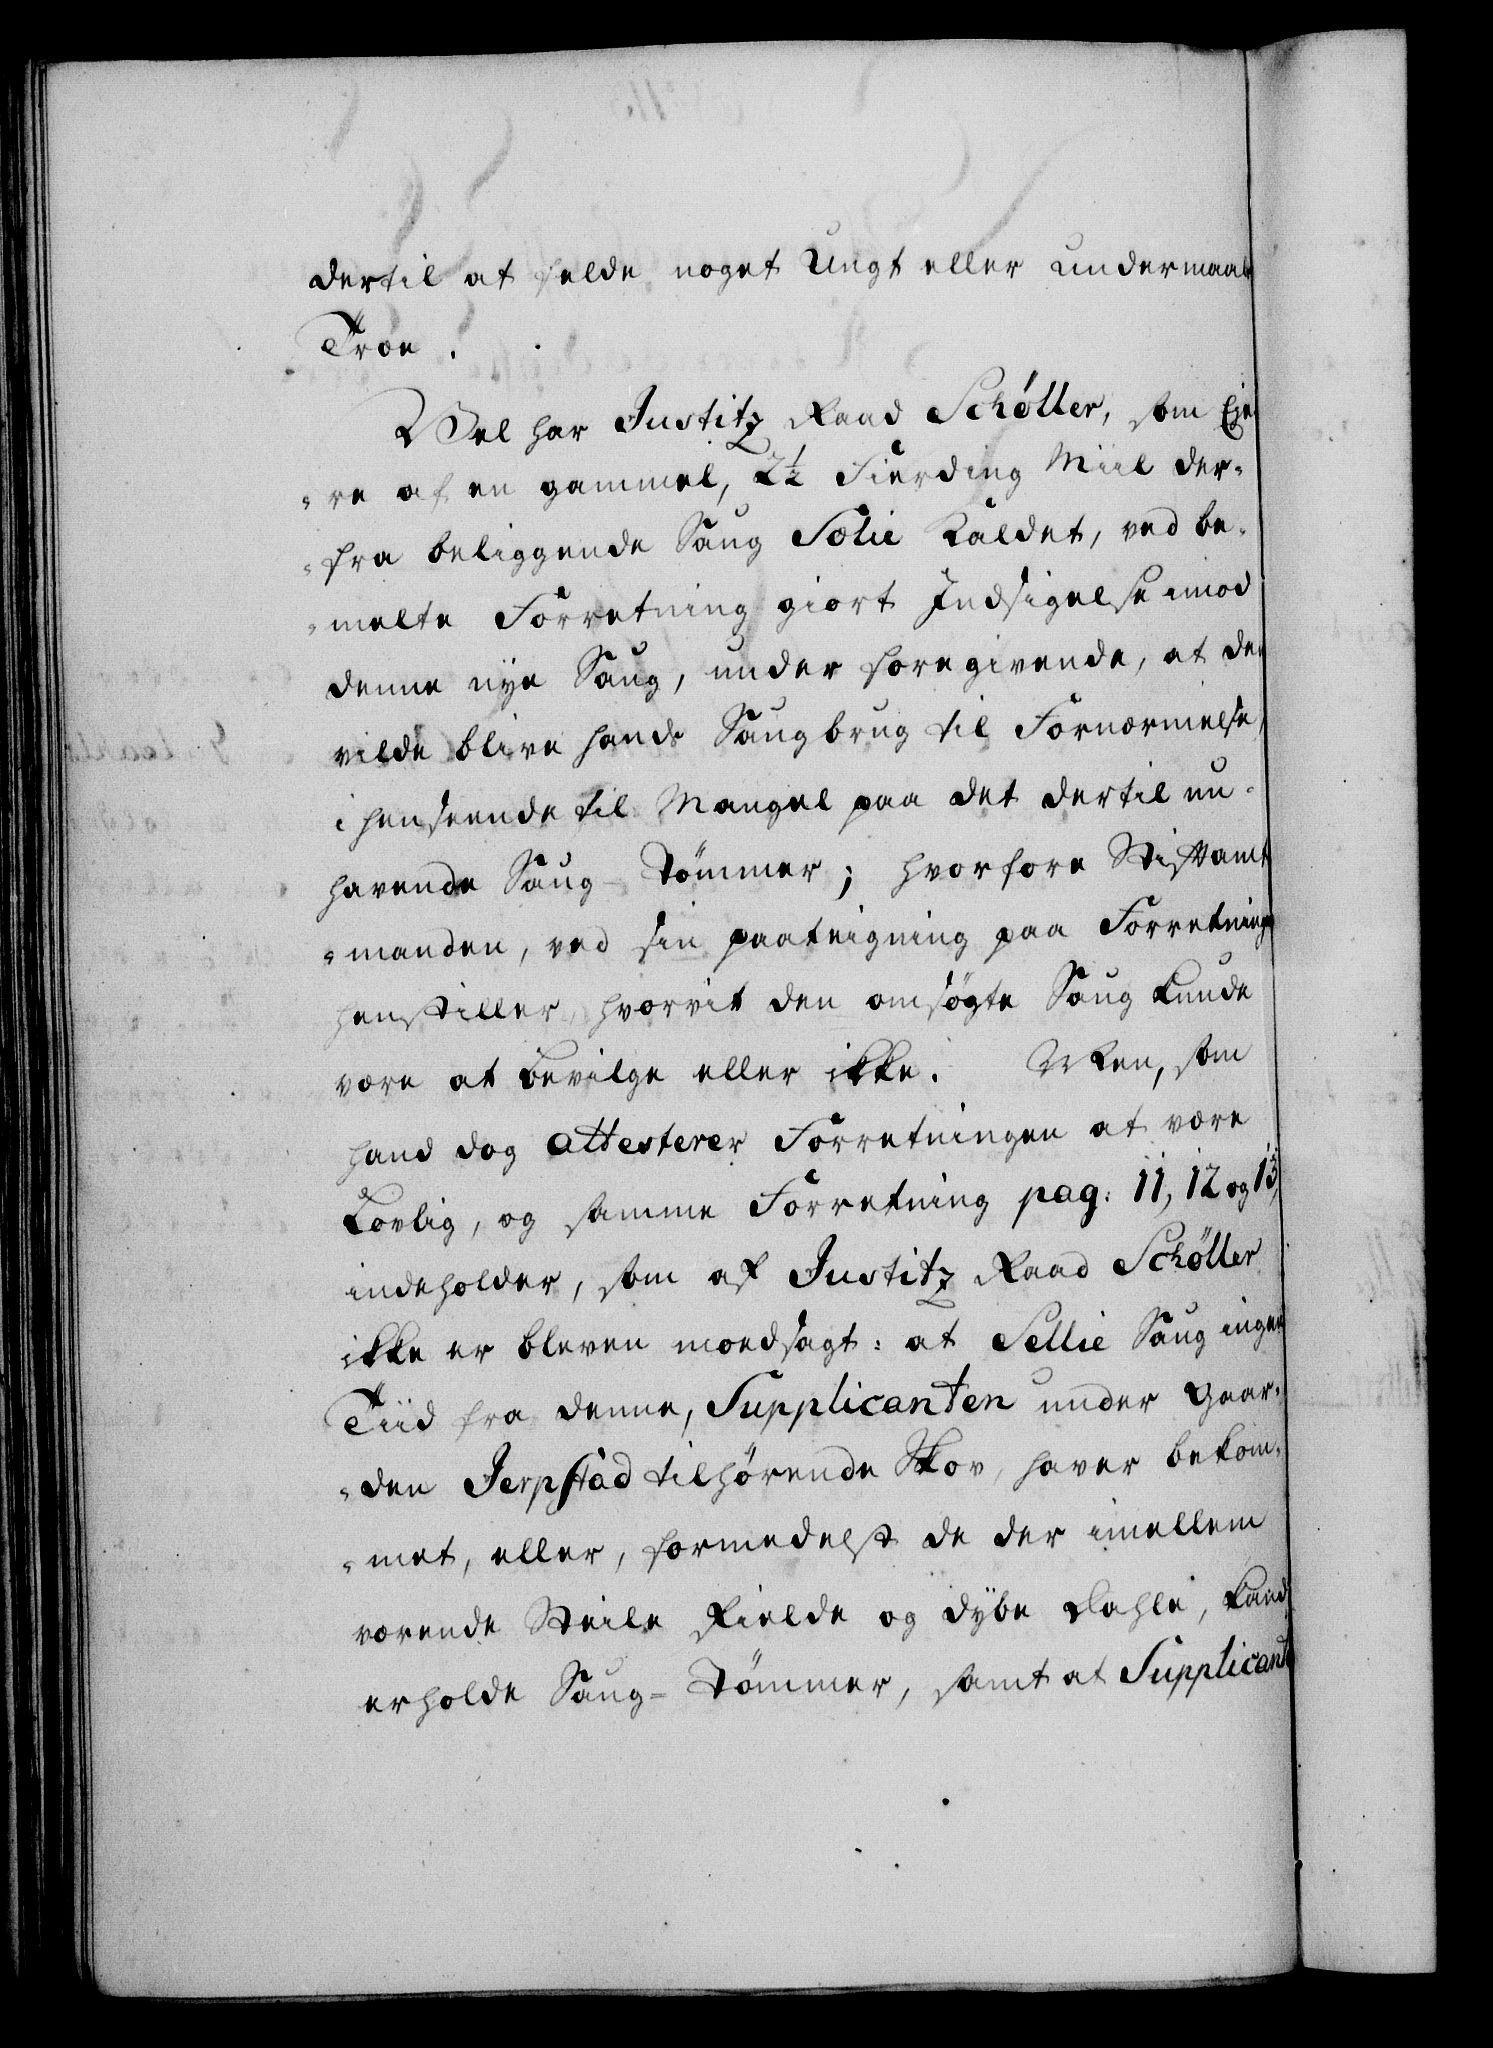 dertil at felde noget Ungt eller undermaals
Træe.
Vel har Justitz Raad Schøller, som Eje-
re af en gammel, 2½ Fierding Miil der-
fra beliggende Saug Sælie kaldet, ved be-
melte Forretning giort Indsigelse imod
denne nye Saug, under foregivende, at den
vilde blive hands Saugbrug til Fornærmelse,
i henseende til Mangel paa det dertil nu-
havende Saug-Tømmer; hvorfore Stiftamt
manden, ved sin paateigning paa Forretningen
henstiller, hvorvit den omsøgte Saug kunde
være at bevilge eller ikke. Men, som
hand dog attesterer Forretningen at være
Lovlig, og samme Forretning pag: 11, 12 og 13,
indeholder, som af Justitz Raad Schøller
ikke er bleven moedsagt: at Sellie Saug ingen
Tiid fra denne, Supplicanten under Gaar-
den Jerpstad tilhørende Skov, haver bekom-
met, eller, formedelst de der imellem
værende Steile Fielde og dybe Dahle, kand
erholde Saug-Tømmer, samt at Supplicant